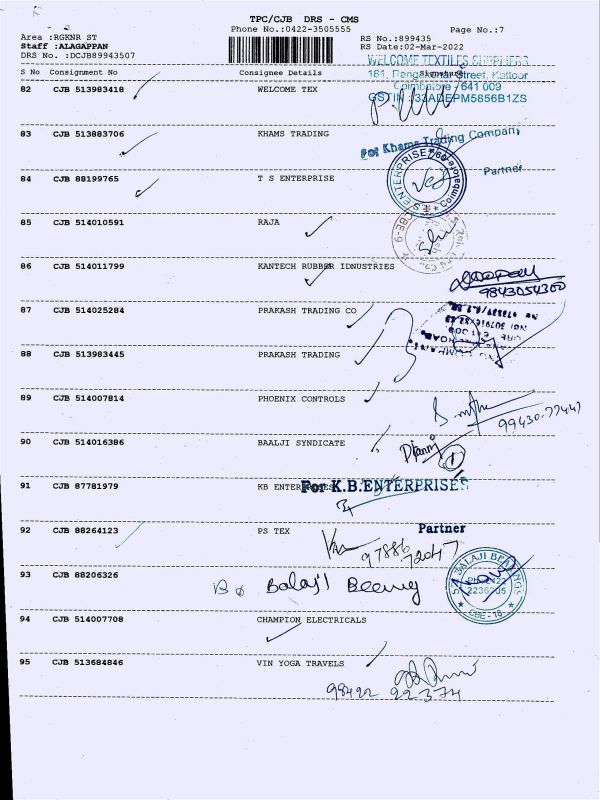 TPC/CJB DRS - CMS
Phone No.:0422-3505555
Page No.:7
Area :RGKNR ST
RS No.:899435
Staff :ALAGAPPAN
RS Date:02-Mar-2022
DRS No. :DCJB89943507
WELCOME TEXTILES SUPPLIERS
S No Consignment No Consignee Details Signature
181, Street, Kattoor
Coimbatore - 641 009
GSTIN : 33ADEPM5856B1ZS
82 CJB 513983418 WELCOME TEX
83 CJB 513883706 KHAMS TRADING
For Khams Trading Company
Partner
84 CJB 88199765 T S ENTERPRISE
85 CJB 514010591 RAJA
86 CJB 514011799 KANTECH RUBBER IDNUSTRIES
9843054300
87 CJB 514025284 PRAKASH TRADING CO
88 CJB 513983445 PRAKASH TRADING
89 CJB 514007814 PHOENIX CONTROLS
90 CJB 514016386 BAALJI SYNDICATE
1
91 CJB 87781979 KB ENTERPRISES
For K.B.ENTERPRISES
Partner
92 CJB 88264123 PS TEX
97886 72047
93 CJB 88206326
Balaji Beering
SRI BALAJI BEARINGS
2236205
CBE - 18
94 CJB 514007708 CHAMPION ELECTRICALS
95 CJB 513684846 VIN YOGA TRAVELS
98422 22374